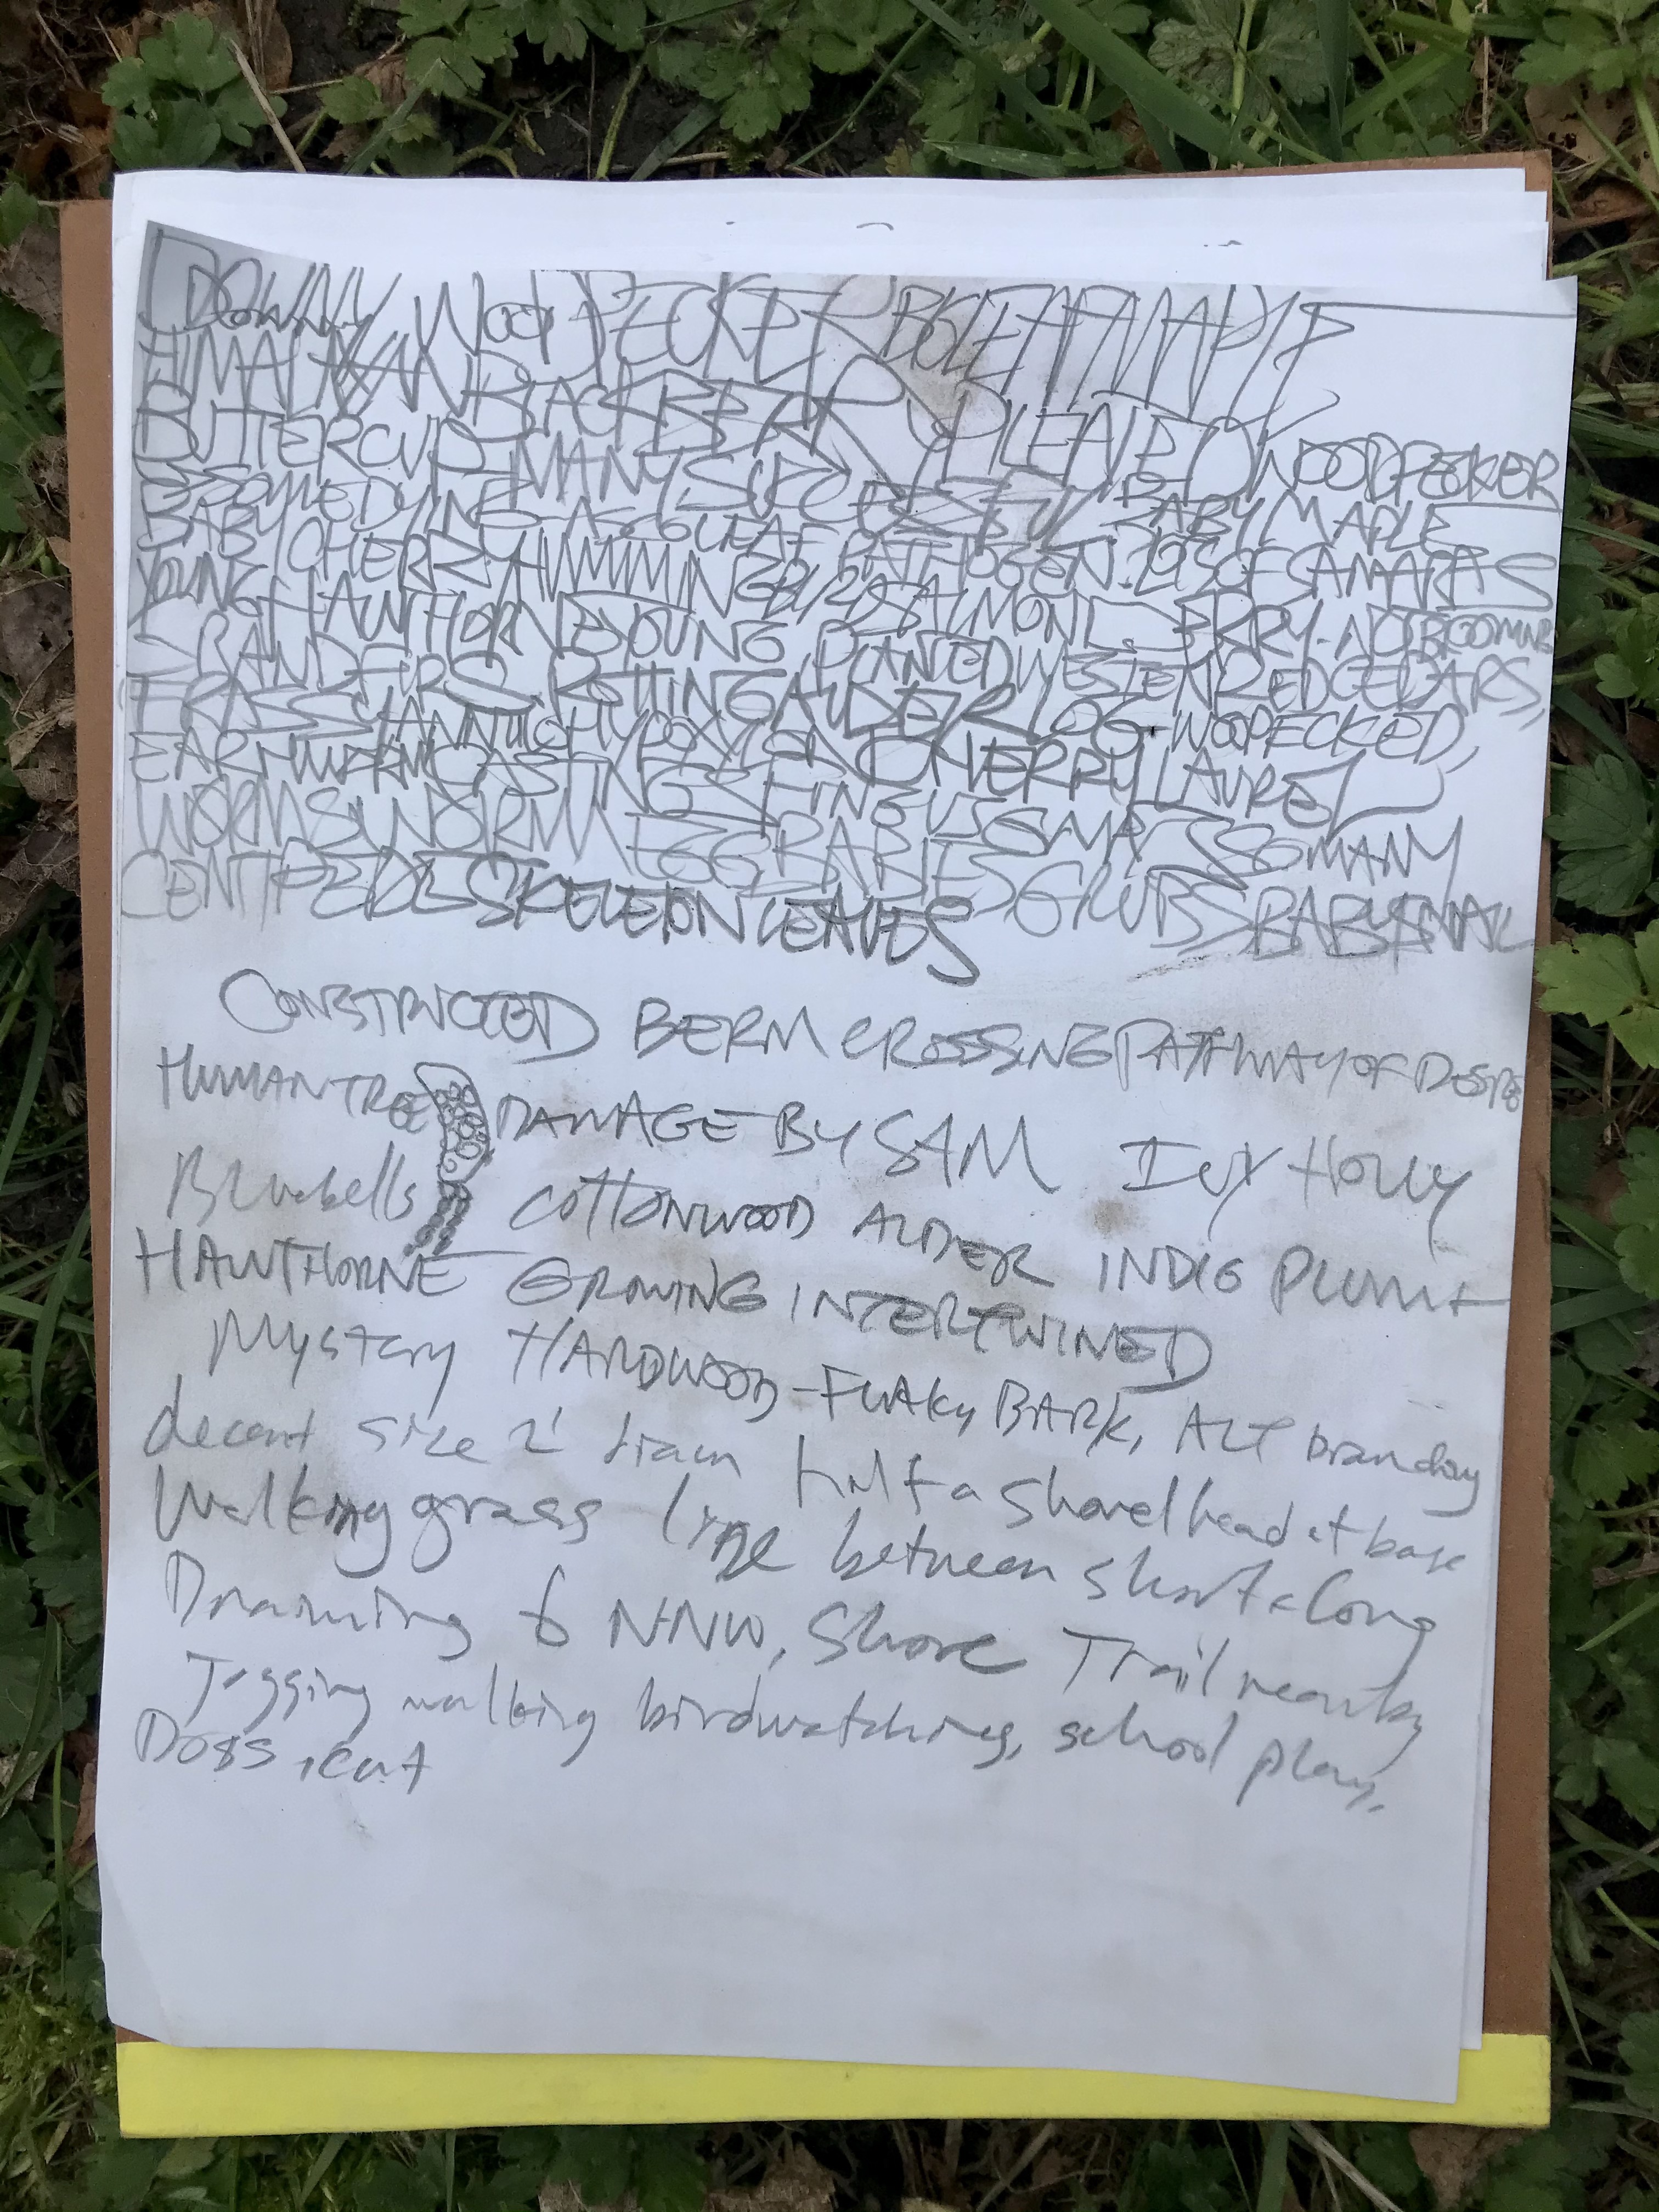 DOWNY WOODPECKER BIGLEAF MAPLE
HIMALAYAN BLACKBERRY PILEATED WOODPECKER
BUTTERCUP MANY SUCCESSFUL BABY MAPLE
SOME DYING LEAF PATHOGEN. LOTS OF SAMARAS
BABY CHERRY HUMMINGBIRD SALMONBERRY - NOT BLOOMING
YOUNG HAWTHORNE YOUNG PLANTED WESTERN REDCEDARS,
GRAND FIRS ROTTING ALDER LOG - WOODPECKED,
FRASS CHERRY LAUREL
EARTHWORM CASTINGS FUNGUS GNATS SO MANY
WORMS WORM EGG BABIES GRUBS BABY SNAIL
CENTIPEDES SKELETON LEAVES
CONSTRUCTED BERM CROSSING PATHWAY OF DESIRE
HUMAN TREE DAMAGE BY SAM IVY HOLLY
Bluebells COTTONWOOD ALDER INDIG PLUM +
HAWTHORNE GROWING INTERTWINED
Mystery HARDWOOD - FLAKY BARK, ALT branching
decent size 2' half a shovelhead at base
Walking grass line between short & long
Draining to NNW, Shore Trail nearby
Jogging walking birdwatching, school play,
DOGS, cat